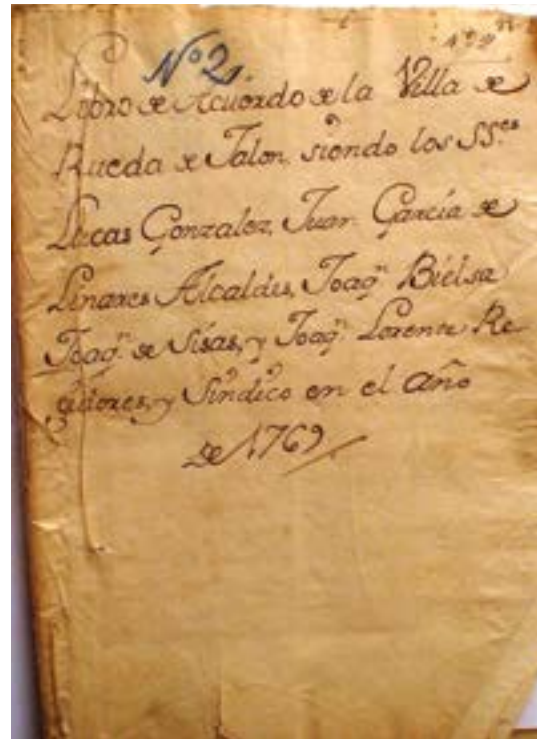 Nº 2
Libro de Acuerdo de la Villa de
Rueda de Jalon siendo los SS.es
Lucas Gonzalez, Juan Garcia de
Linares Alcaldes, Joaqn Bielsa
Joaqn de Sisas, y Joaqn Lorente Re
gidores, y Sindico en el año
de 1769